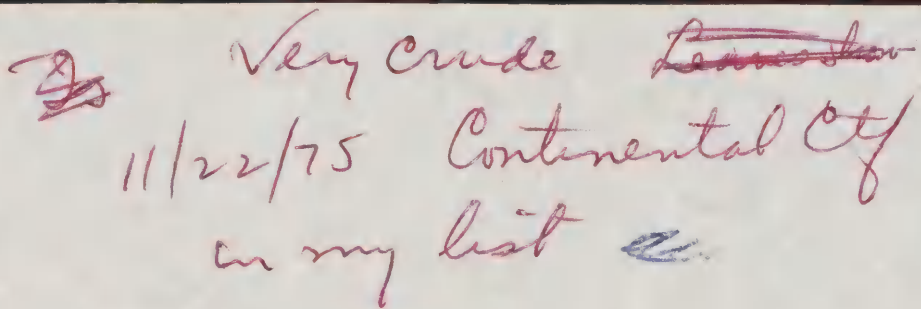 Very Crude
11/22/75 Continental Ctf
in my list